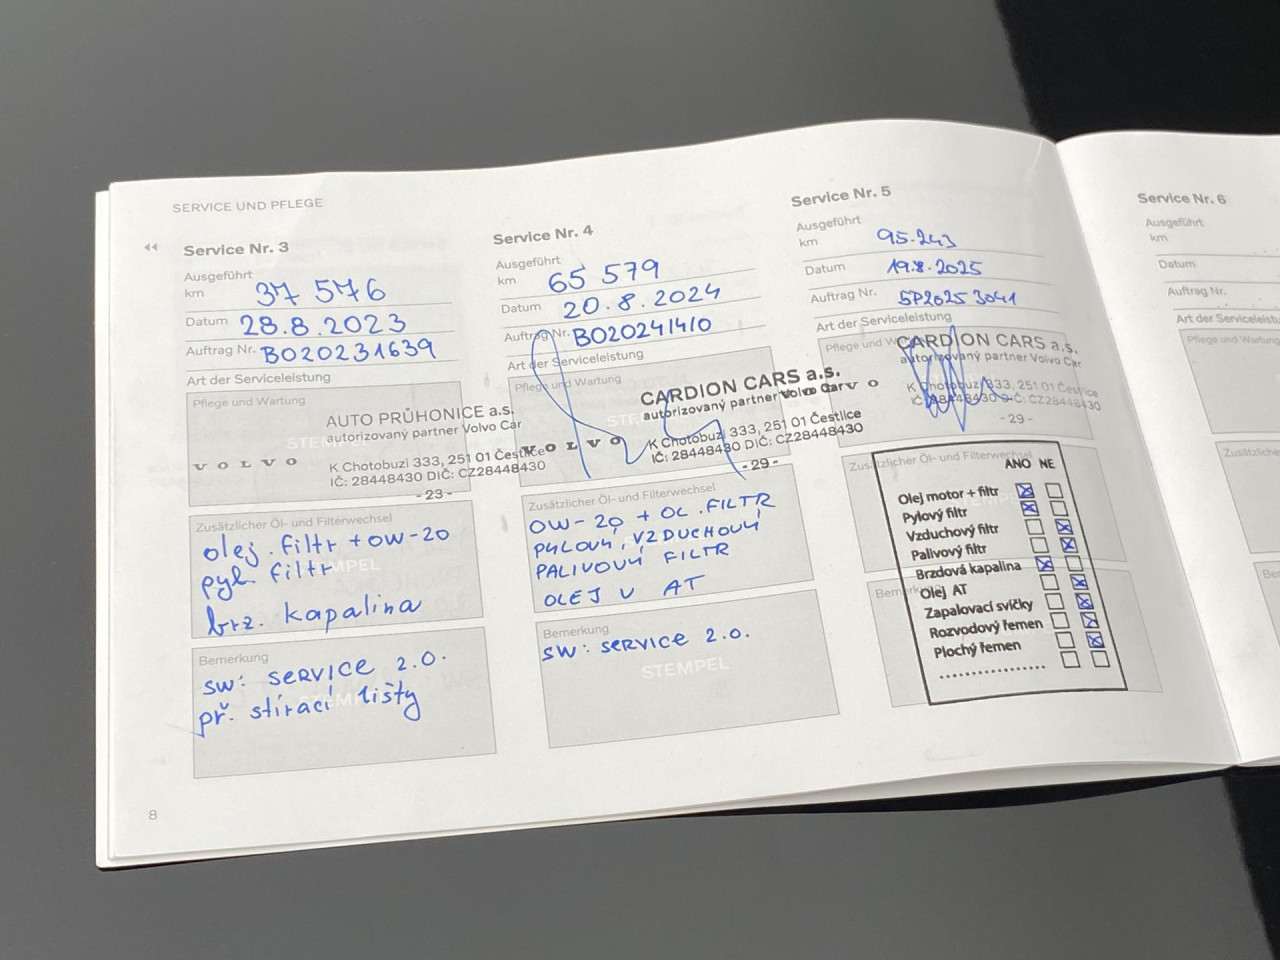 SERVICE UND PFLEGE
Service Nr. 3
Ausgeführt
km 37 576
Datum 28.8.2023
Auftrag Nr. BO20231639
Art der Serviceleistung
Pflege und Wartung
AUTO PRŮHONICE a.s.
autorizovaný partner Volvo Car
VOLVO
K Chotobuzi 333, 251 01 Čestlice
IČ: 28448430 DIČ: CZ28448430
- 23 -
Zusätzlicher Öl- und Filterwechsel
olej. filtr + OW-20
pyl. filtr
brz. kapalina
Bemerkung
SW: SERVICE 2.0.
př. stírací lišty
8
Service Nr. 4
Ausgeführt
km 65 579
Datum 20.8.2024
Auftrag Nr. BO20241410
Art der Serviceleistung
Pflege und Wartung
CARDION CARS a.s.
autorizovaný partner Volvo Car
VOLVO
K Chotobuzi 333, 251 01 Čestlice
IČ: 28448430 DIČ: CZ28448430
- 29 -
Zusätzlicher Öl- und Filterwechsel
OW-20 + OL.FILTR
PYLOVÝ, VZDUCHOVÝ
PALIVOVÝ FILTR
OLEJ V AT
Bemerkung
SW: SERVICE 2.0.
STEMPEL
Service Nr. 5
Ausgeführt
km 95.243
Datum 19.8.2025
Auftrag Nr. SP2025 3041
Art der Serviceleistung
Pflege und
CARDION CARS a.s.
autorizovaný partner Volvo Car
K Chotobuzi 333, 251 01 Čestlice
IČ: 28448430 DIČ: CZ28448430
- 29 -
Zusätzlicher Öl- und Filterwechsel
ANO NE
Olej motor + filtr
Pylový filtr
Vzduchový filtr
Palivový filtr
Brzdová kapalina
Olej AT
Zapalovací svíčky
Rozvodový řemen
Plochý řemen
Service Nr. 6
Ausgeführt
km
Datum
Auftrag Nr.
Art der
Pflege und